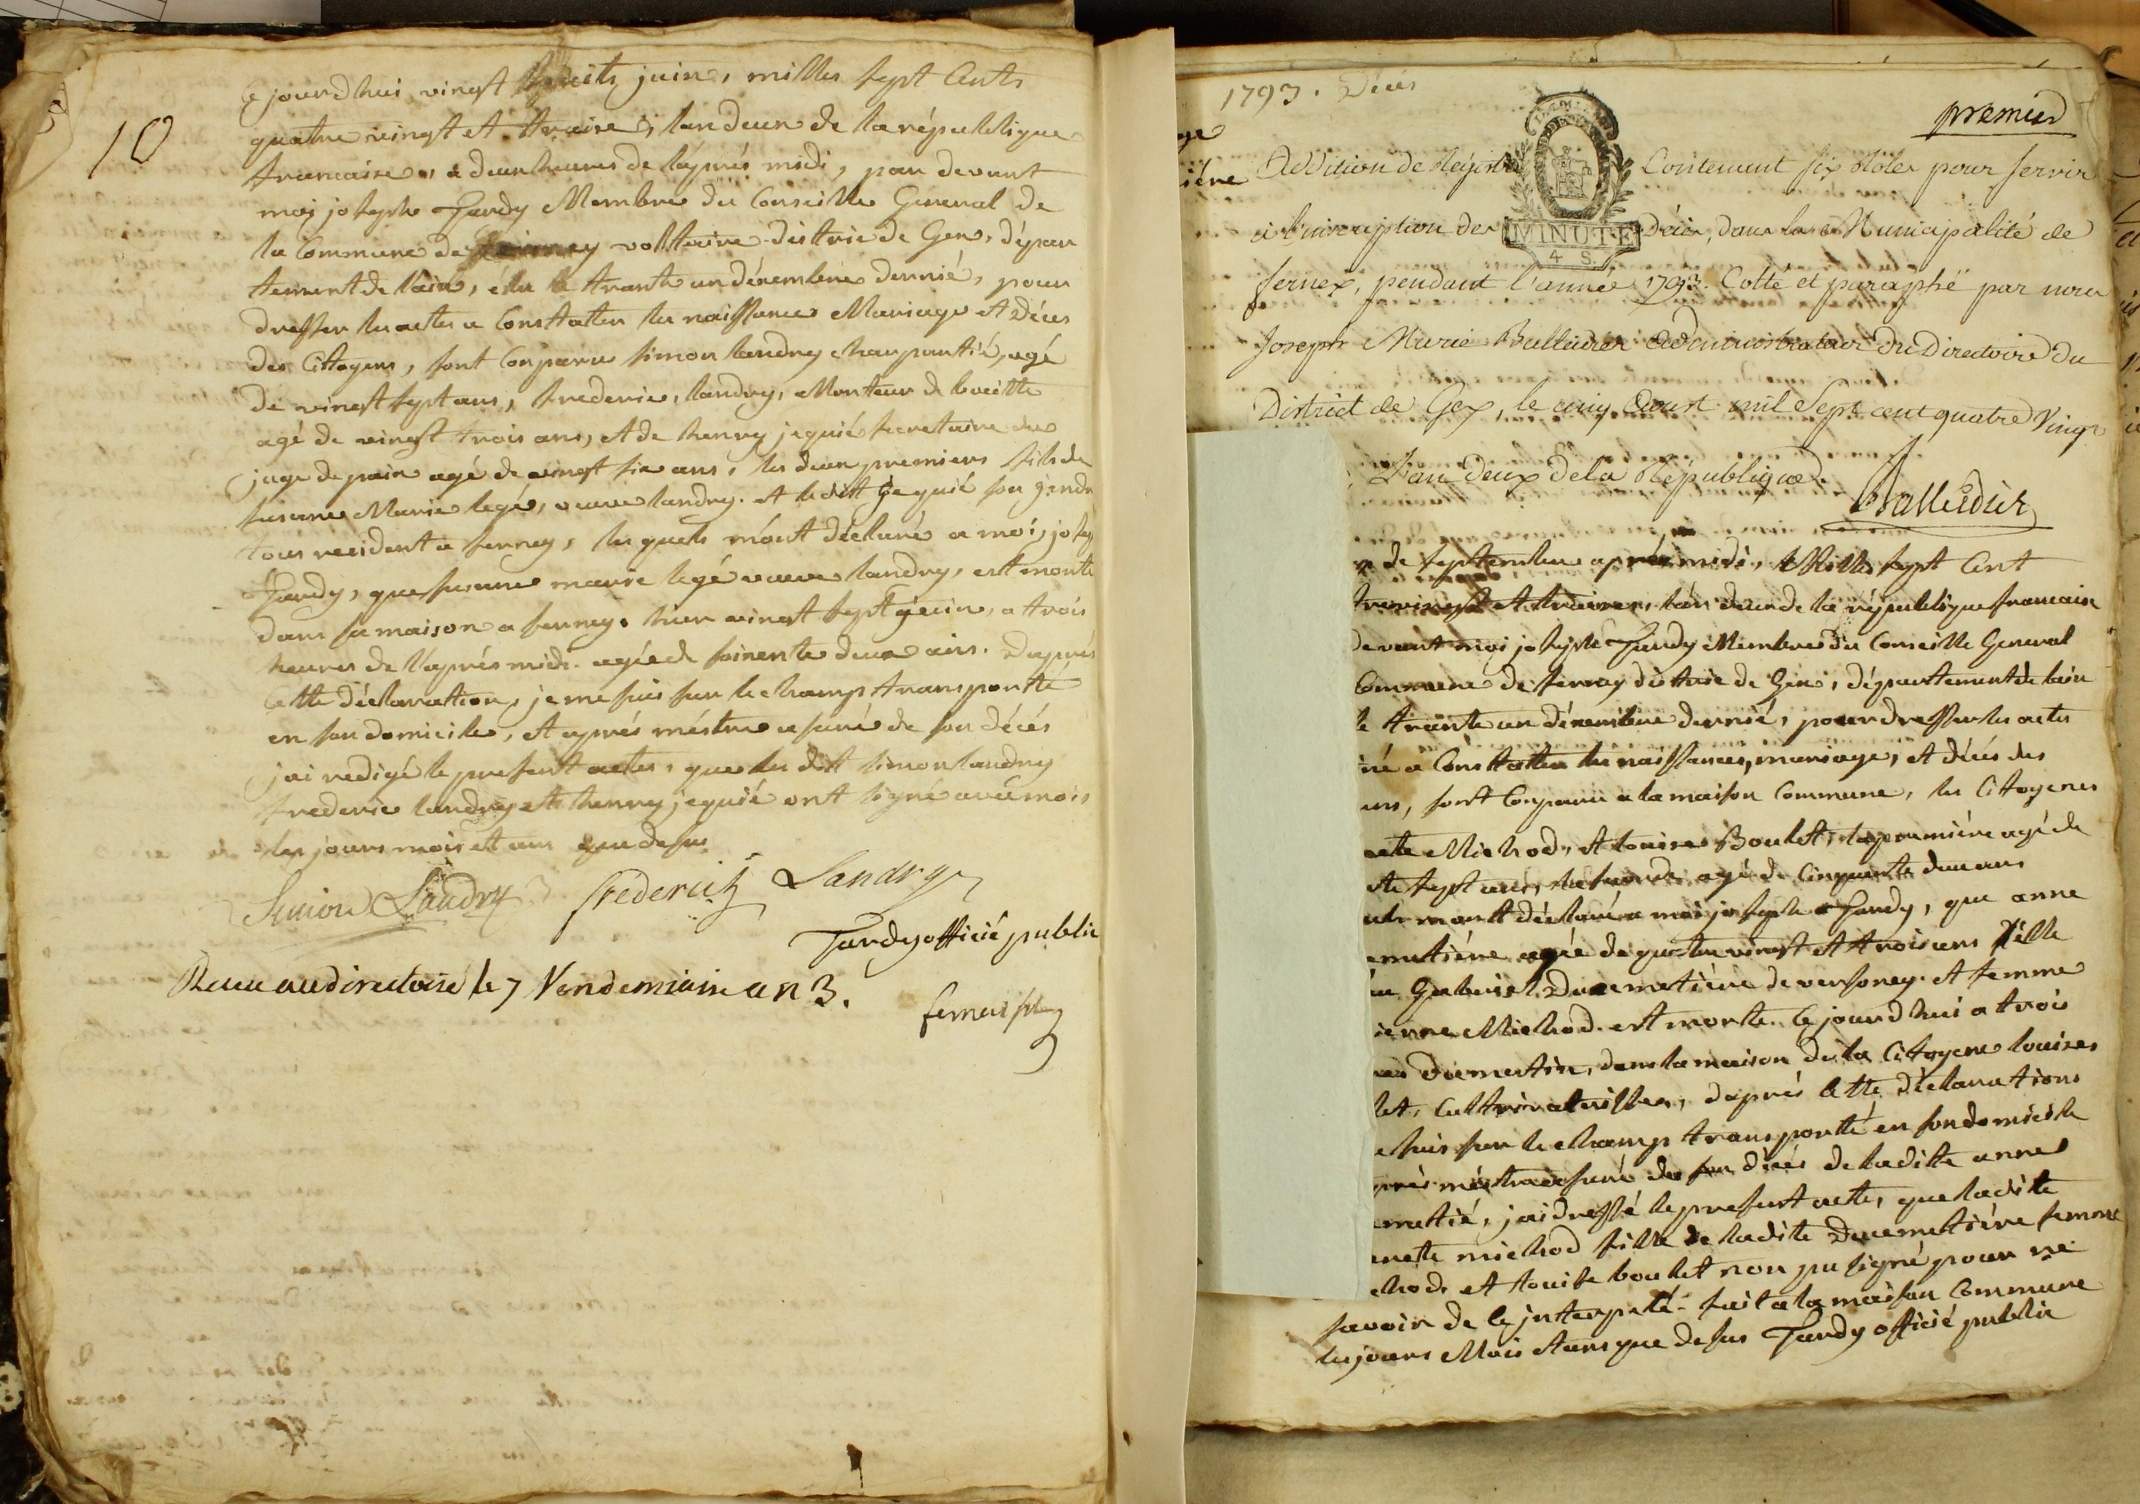 10
Ce jourdhui vingt huits juin, milles sept Cents
quatre vingt et traise, lan deux de la république
francaise, a deux heures de laprés midi, par devant
moi joseph Tardy Membre du Conseille General de
la Commune de ferney volltaire distric de Gex, dépar
tement de lain, élu le trante un désembre dernié, pour
dresser les actes a Constatter les naissance Mariage et Décès
des Cittoyens, sont Conparu simon landry charpantié, agé
de vingt sept ans, frederic, landry, Monteur de boeitte
agé de vingt trois ans, et de henry jequié secretaire du
juge de paix agé de vingt six ans, les deux premiers fils de
susane Marie legé, veuve landry. et ledit jequié son gendre
tous resident a ferney, les quels m'ont déclaré a moi, josep
Tardy, que susane marie legé veuve landry, est morte
dans sa maison a ferney, hier vingt sept juin, a trois
heures de l'aprés midi. agée de soixente deux ans. Daprés
Cette déclaration, je me suis sur le champ transporté
en son domicile, et aprés méstre asuré de son décés
jai redigé le present actes, que les dit simon landry
frederic landry et henry jequié ont signé avec mois
les jours mois et ans que desus
Simon Landry frederich Landry
Tardy officié public
Revu au directoire le 7 Vendemiaire an 3.
1793. Décés
premier
Addition de Régistre Contenant six Rôles pour servir
MINUTE
4 S.
à l'inscription des Décès, dans la Municipalité de
fernex, pendant l'année 1793. Cotté et paraphé par nous
Joseph Marie Balleidier Administrateur du Directoire du
District de Gex, le cinq Aoust mil Sept cent quatre Vingt
L'an deux de la République.
Balleidier
ge
iére
de septembre aprés midi, Mille sept Cent
trevingt et traises, lan deux de la république francaise
devant moi joseph Tardy Membre du Conseille General
Commune de ferney distric de Gex, département de lain
le trante un désembre dernié, pour dresser les actes
né a Constatter les naissances, mariage, et décés des
ens, sont Conparu a la maison Commune, les Cittoyenes
ete Michod, et louise Boulet, la premiére agé de
te sept ans, la segonde agé de Cinquante deux ans
uels mont déclaré a moi joseph Tardy, que anne
emetiére agée de quatre vingt et trois ans fille
Gabriel Ducemetiére de versoney. et femme
ienne Michod. est morte Ce jourdhui a trois
res du mestin, dans la maison de la Citoyene louises
let, Cultrivatrisses, daprés Cette déclarations
e suis sur le champ transporté en son domicile
prés méstre asuré du son décés de ladite anne
emetié, jai dressé le present acte, que ladite
nete michod fille de ladite Ducemetiére femme
chod, et louise boulet non pu signé pour ne
savoir de Ce jnterpelé. fait a la maison Commune
les jours Mois et ans que desus Tardy officié public